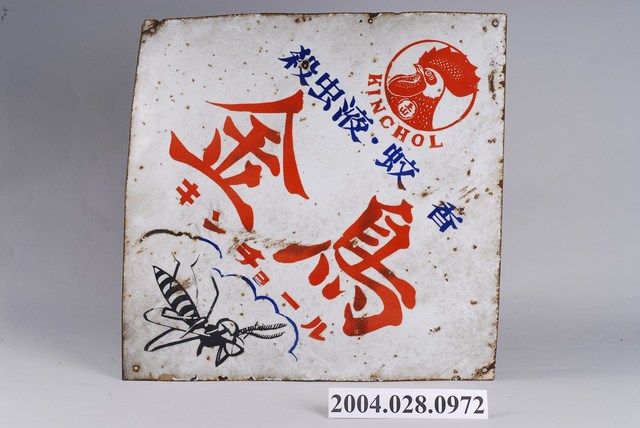 KINCHOL
殺虫液・蚊香
金鳥
キンチョール
2004.028.0972